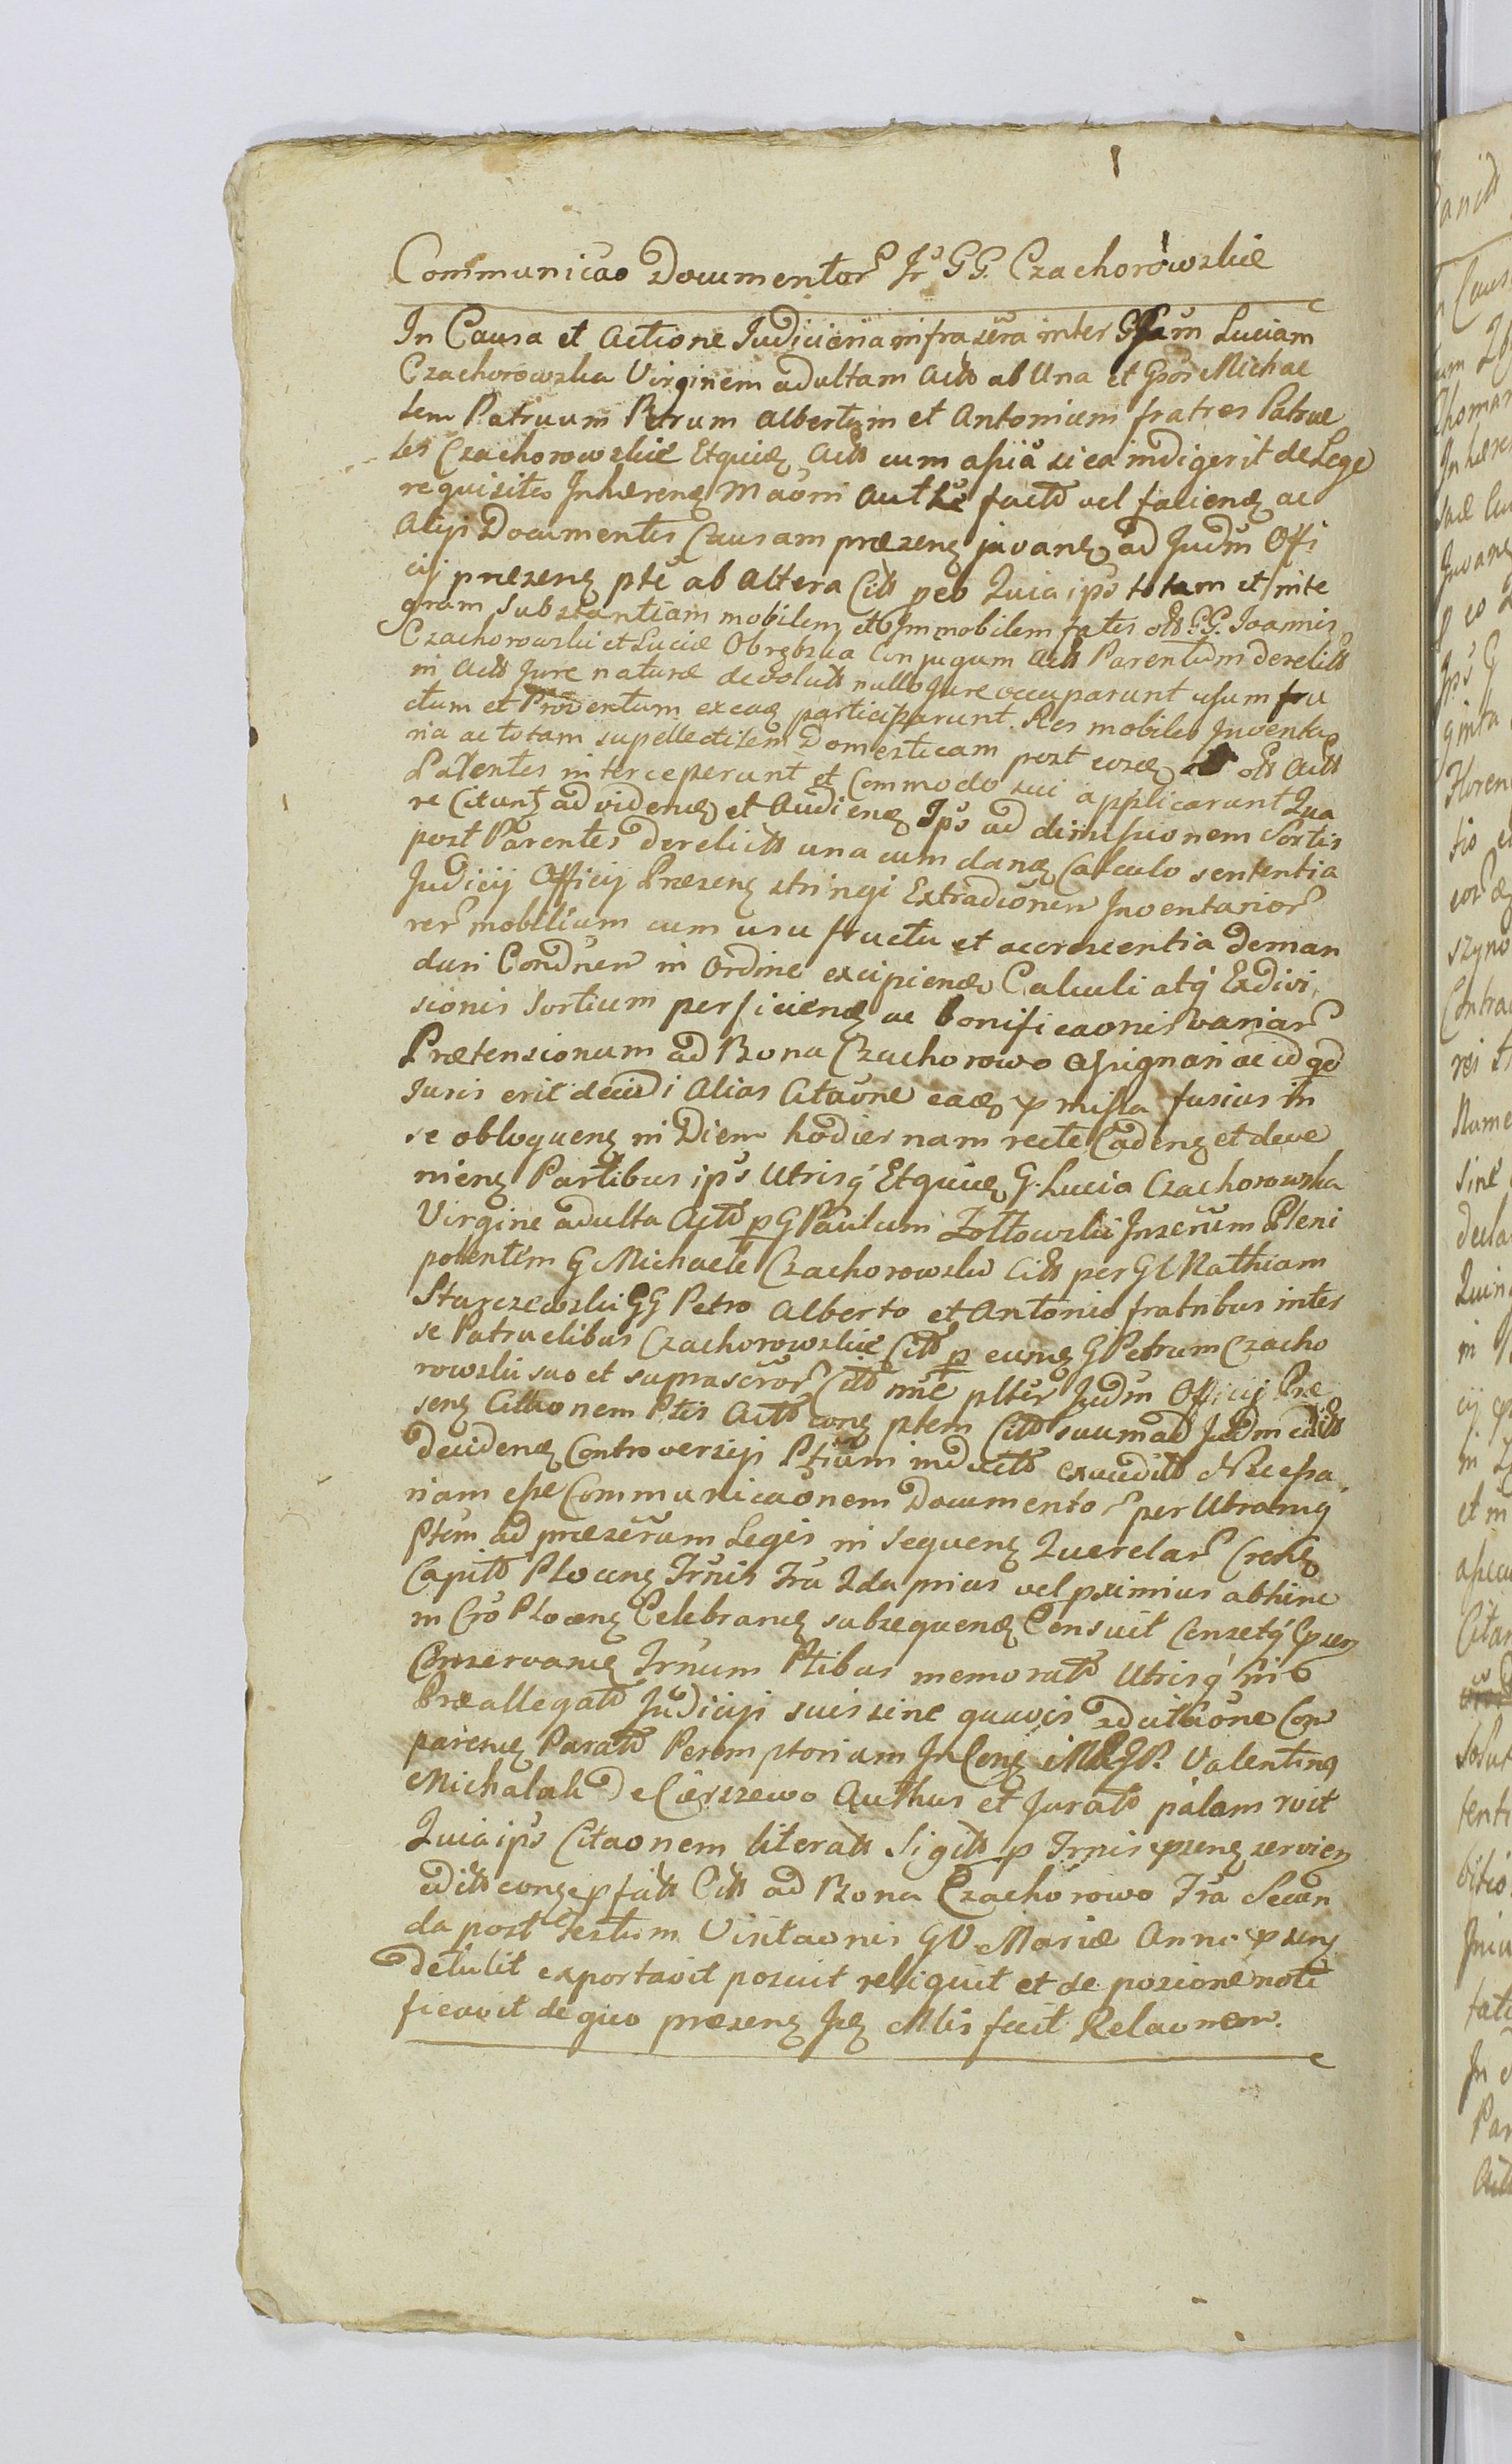 1
Communicao Documentor Ir GG. Czachorowskie
In Causa et Actione Judiciaria infra scra inter Gsam Luciam
Czachorowska Virginem adultam Acts ab Una et Gsos Michae
lem Patruum Petrum Albertum et Antonium fratres Patrue
les Czachorowskie Etquidz Acts cum assia si ea indigerit de Lege
requisites Inhærenz Maoni Auth facts vel facienz ac
Alijs Documentis Causam præsenz juvanz ad Judm Offi
cij præsenz pte ab Altera Cits peo Quia ips totam et inte
gram substantiam mobilem et Immobilem fates olts GG. Joannis
Czachorowski et Luciæ Obrębska Conjugum Acts Parentum derelits
in Acts Jure naturæ devoluts nullo Jure occuparunt usum fru
ctum et Proventum ex eaz participarunt. Res mobiles Inventa
ria ac totam supellectilem Domesticam post eosdz olts Acts
Parentes interceperunt et Commodo sui applicarunt Qua
re Citunt ad videnz et Audienz Ips ad dimissionem Sortis
post Parentes derelicts una cum danz Calculo sententia
Judicij Officij Præsenz stringi Extradionen Inventarior
rer mobilium cum usu fructu et accrescentia deman
dari Condnen in Ordine excipienz Calculi atq Exdivi
sionis Sortium perficienz ac bonificaonis variar
Prætensionum ad Bona Czachorowo Assignari ac id qd
Juris erit decidi Alias Citaone eadz pmissa fusius in
se obloquenz in Diem hodiernam recte Cadenz et deve
nienz Partibus ips Utrisq Etquidz G. Lucia Czachorowska
Virgine adulta Acts p G Paulum Zołtowski Inscrum Pleni
potentem G Michaele Czachorowski Cits per G Mathiam
Starczewski GG Petro Alberto et Antonio fratribus inter
se Patruelibus Czachorowskie Cits p eumdz G Petrum Czacho
rowski suo et suprascror Cits nne plter Judm Officij Præ
senz Cittionem Ptis Acts conz ptem Cits suum ad Judm edits
decidenz Controversijs Ptium inducts exaudits Necessa
riam esse Communicaonem Documentor per Utramq
Ptem ad præscrum Legis in sequenz Querelar Crenz
Capits Plocenz Trnis Fra 2da prius vel pximius abhinc
in Cro Plocenz Celebranz subsequenz Censuit Censetq psen
Conservanz Trnum Ptibus memorats Utrisq in
Præallegats Judicijs suis sine quavis adcitaone Com
parenz Parats Peremptoriam In Conz Valentinq
Michalak de Cierszewo Authus et Jurats palam rvit
Quia ips Citaonem literats Sigits p Trnis psenz servien
edits conz pfats Cits ad Bona Czachorowo Fra Secun
da post Festum Visitaonis GV Mariæ Anni psenz
detulit exportavit posuit reliquit et de posione noti
ficavit de quo præsenz Ipz Mtis fecit Relaonem.